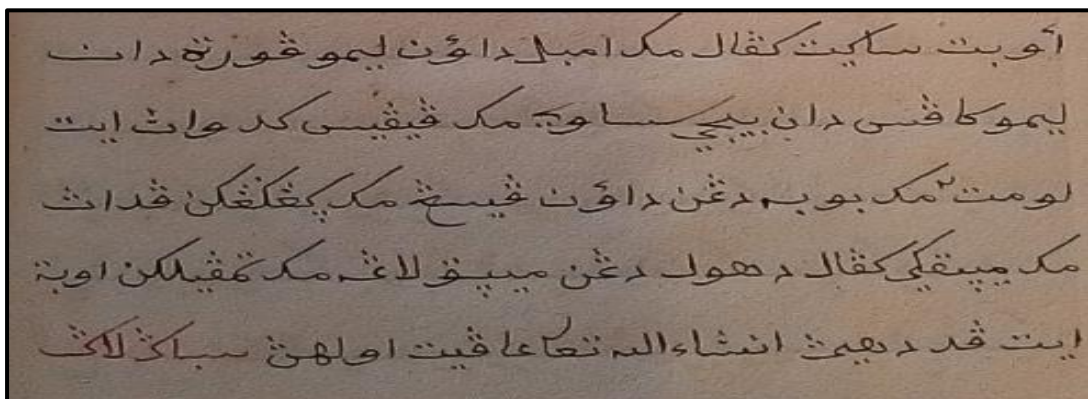 أوبت ساكيت كڤال مك امبل داؤن ليمو ڤورة دان
ليمو كاڤسى دان بيجي ساوي مك ڤيڤيس كدواڽ ايت
لومت٢ مك بوبه دڠن داؤن ڤيسڠ مك ڠڬڠكن ڤداڽ
مك ميڽقكي كڤال دهول دڠن ميڽق لاڠ مك تمڤيلكن اوبة
ايت ڤد دهيڽ انشاء الله تعا عاڤيت اولهڽ